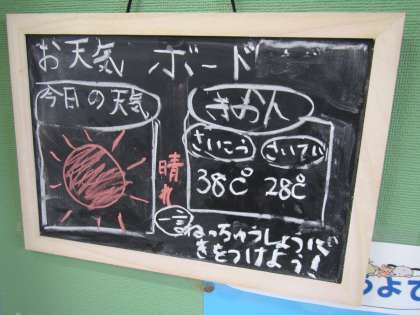 お天気 ボード
今日の天気
晴れ
きおん
さいこう さいてい
38℃ 28℃
一言
ねっちゅうしょうに
きをつけよう!